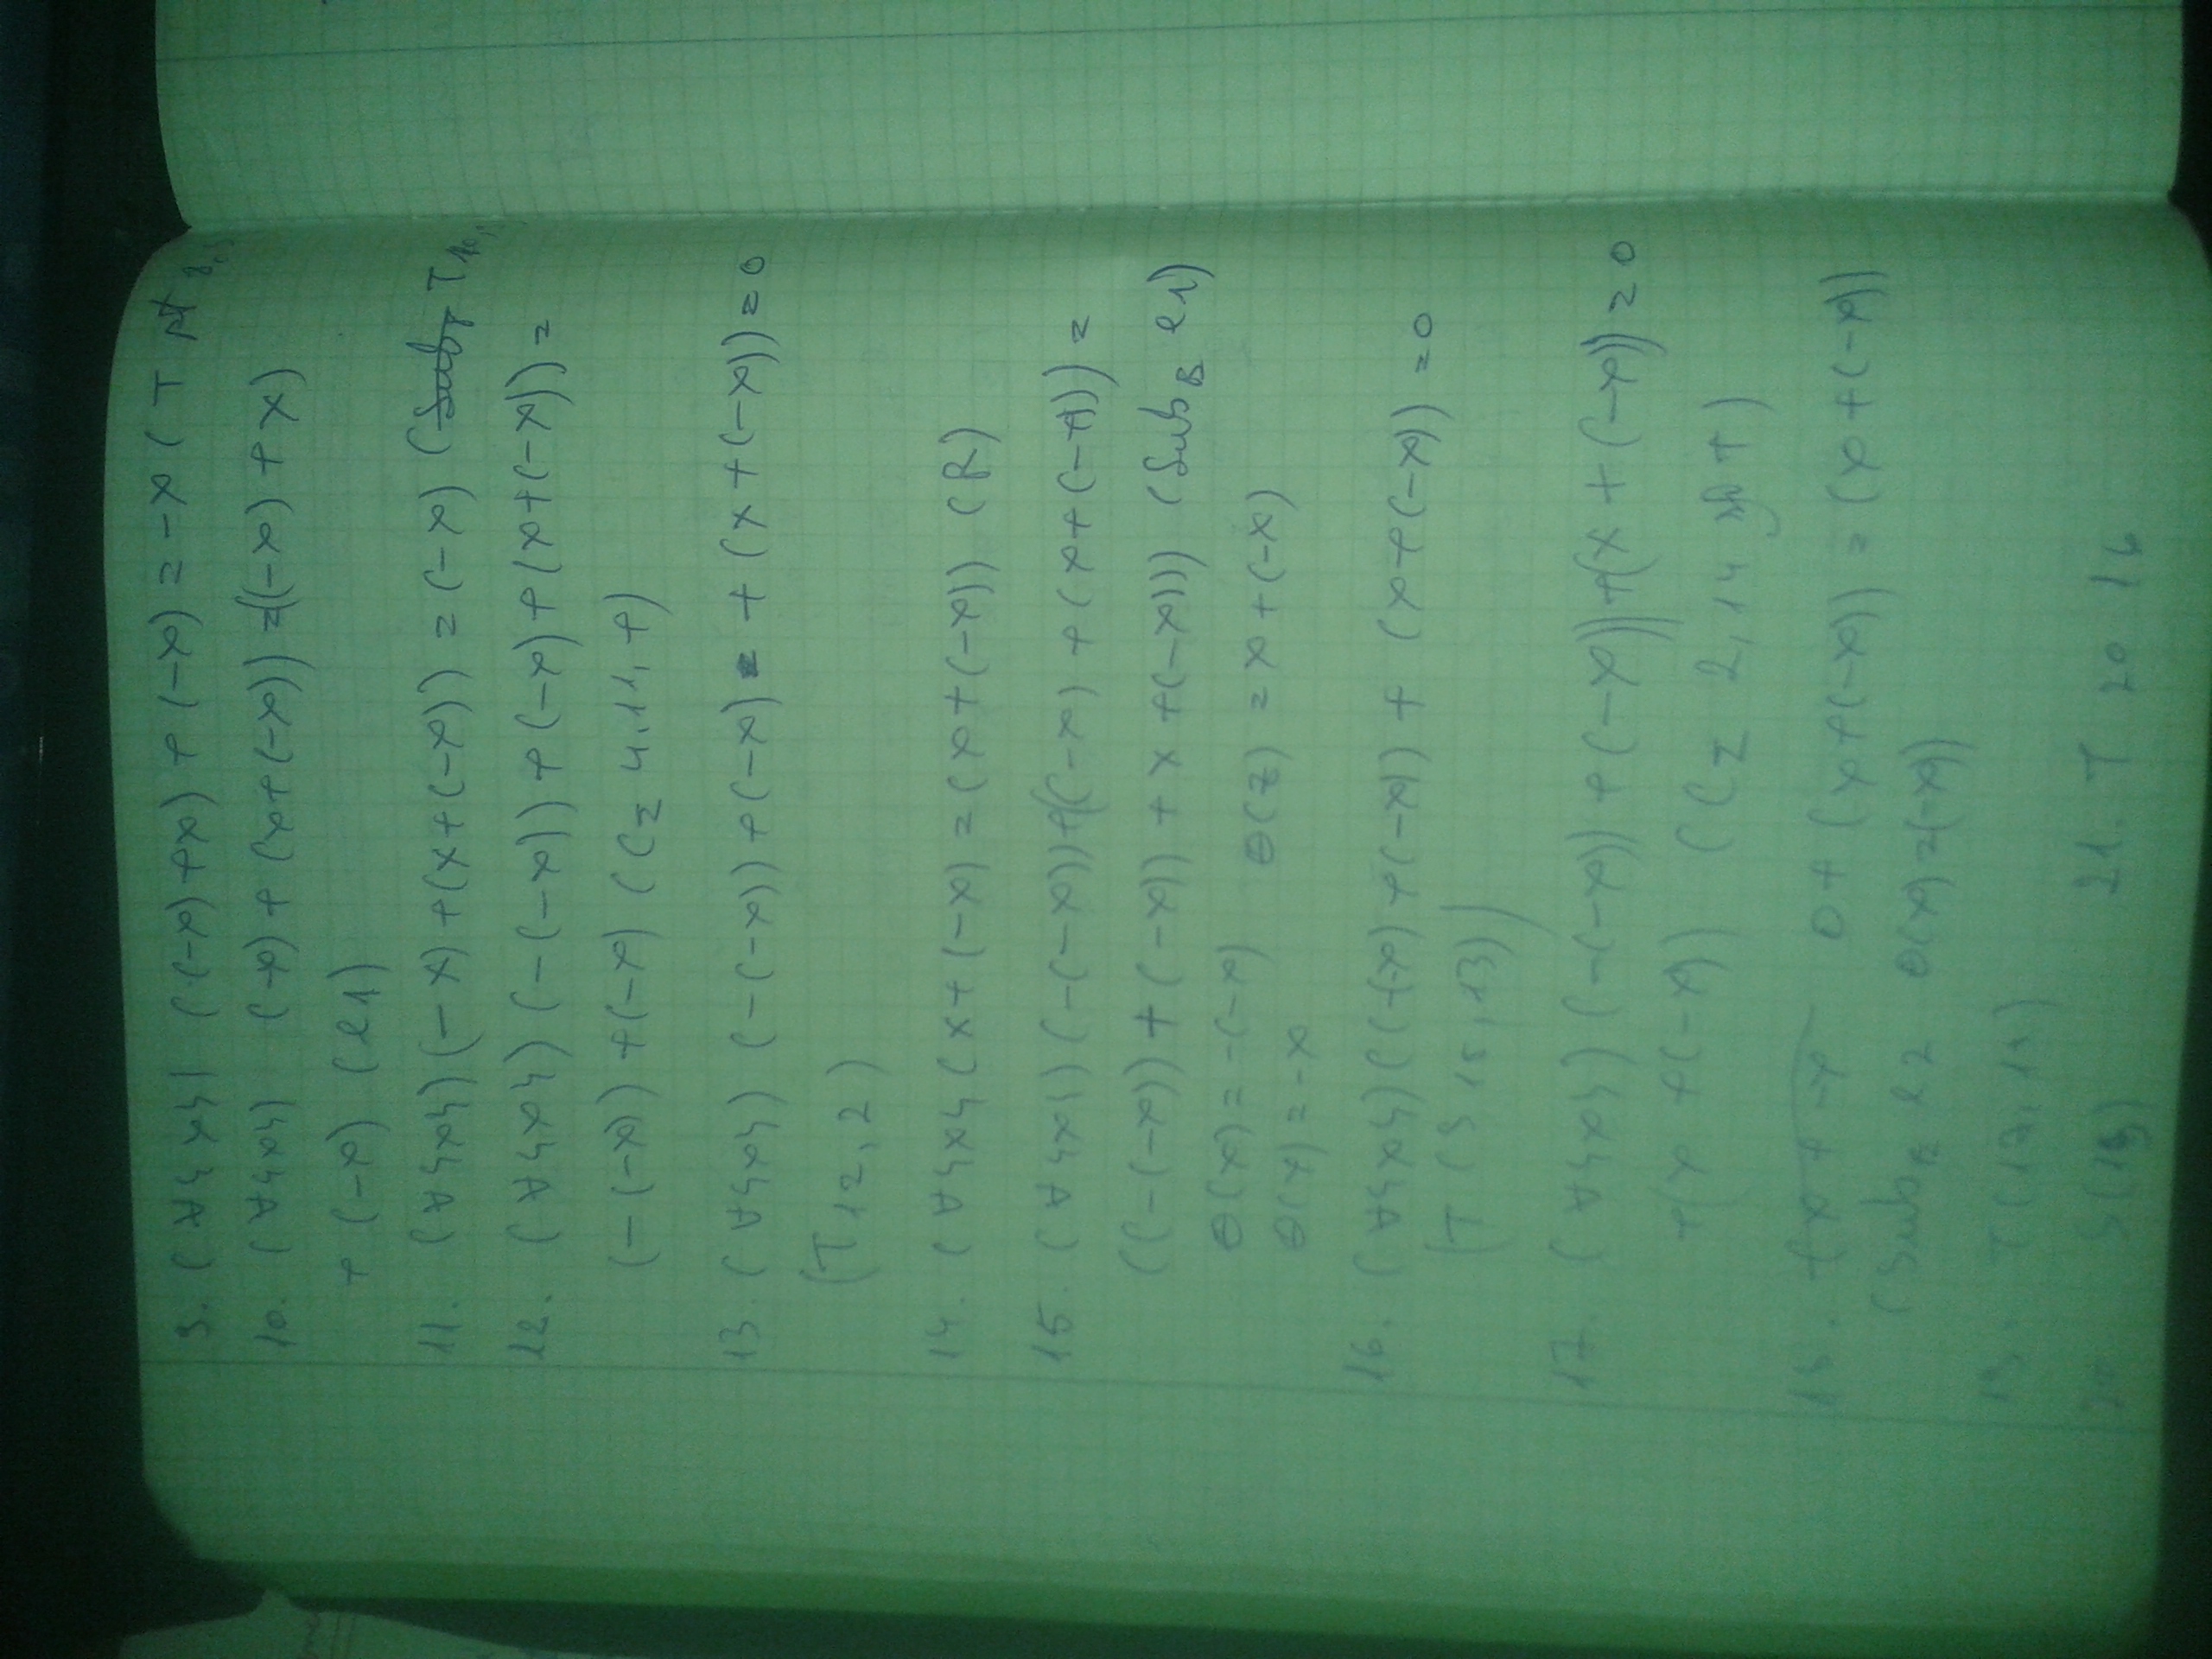 9. (∀{x}) ((-x)+x) + (-x) = -x (T pt 8,
10. (∀{x}) (-x) + (x+(-x)) = ((-x) + x)
+ (-x) (e1)
11. (∀{x}) (-x) + (x+(-x)) = (-x) (Sub T10,
12. (∀{x}) (-(-x)) + (-x) + (x+(-x)) =
(-(-x)) + (-x) (CΣ 4,11,+)
13. (∀{x}) (-(-x)) + (-x) + (x+(-x)) = 0
(T12,2)
14. (∀{x} (x+(-x) = (x+(-x)) (R)
15. (∀{x}) (-(-x))+((-x) + (x+(-x))) =
((-(-x)) + (-x)) + x +(-x))) (SubB e1)
θ(x) = -(-x) θ(z) = x + (-x)
θ(y) = -x
16. (∀{x}) ((-(-x) + (-x)) + (x+(-x)) = 0
(T (S 15,13))
17. (∀{x}) (-(-x)) + (-x)) + (x + (-x)) = 0
+(x +(-x)) (CΣ 2,14 +)
18. 0 + (x+(-x)) = (x+(-x))
(SubB e2 θ(x) = (-x))
19. T(17,18)
20 S(19) 21. T 20 16